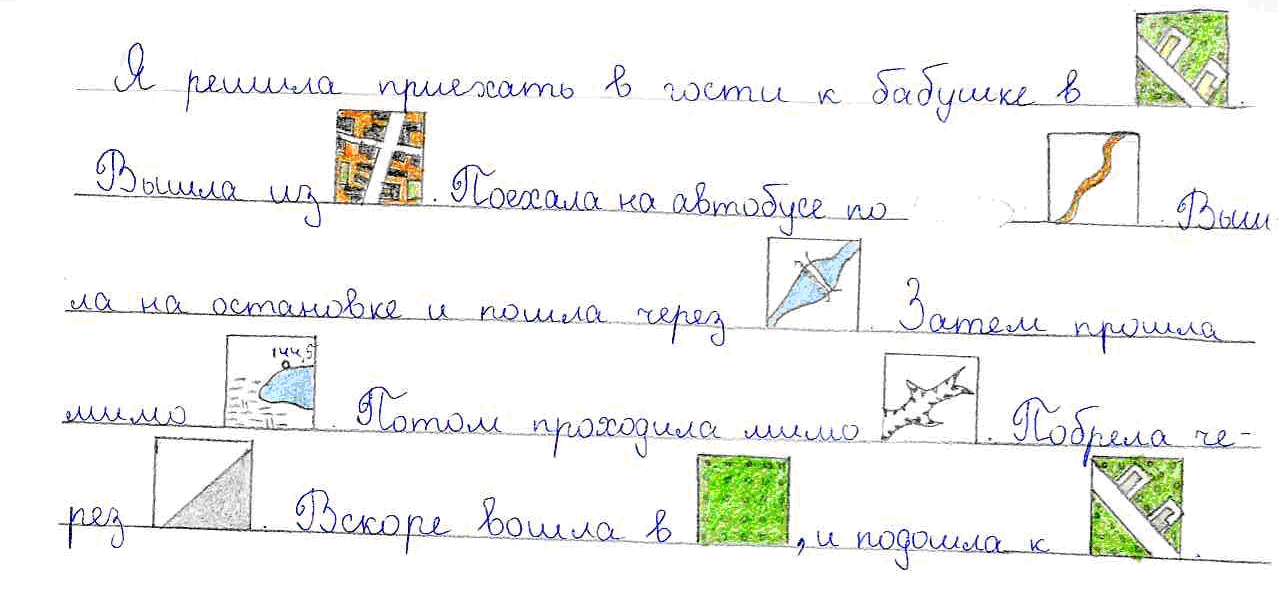 Я решила приехать в гости к бабушке в .
Вышла из . Поехала на автобусе по . Выш
ла на остановке и пошла через . Затем прошла
144,5
мимо . Потом проходила мимо . Побрела че-
рез . Вскоре вошла в , и подошла к .